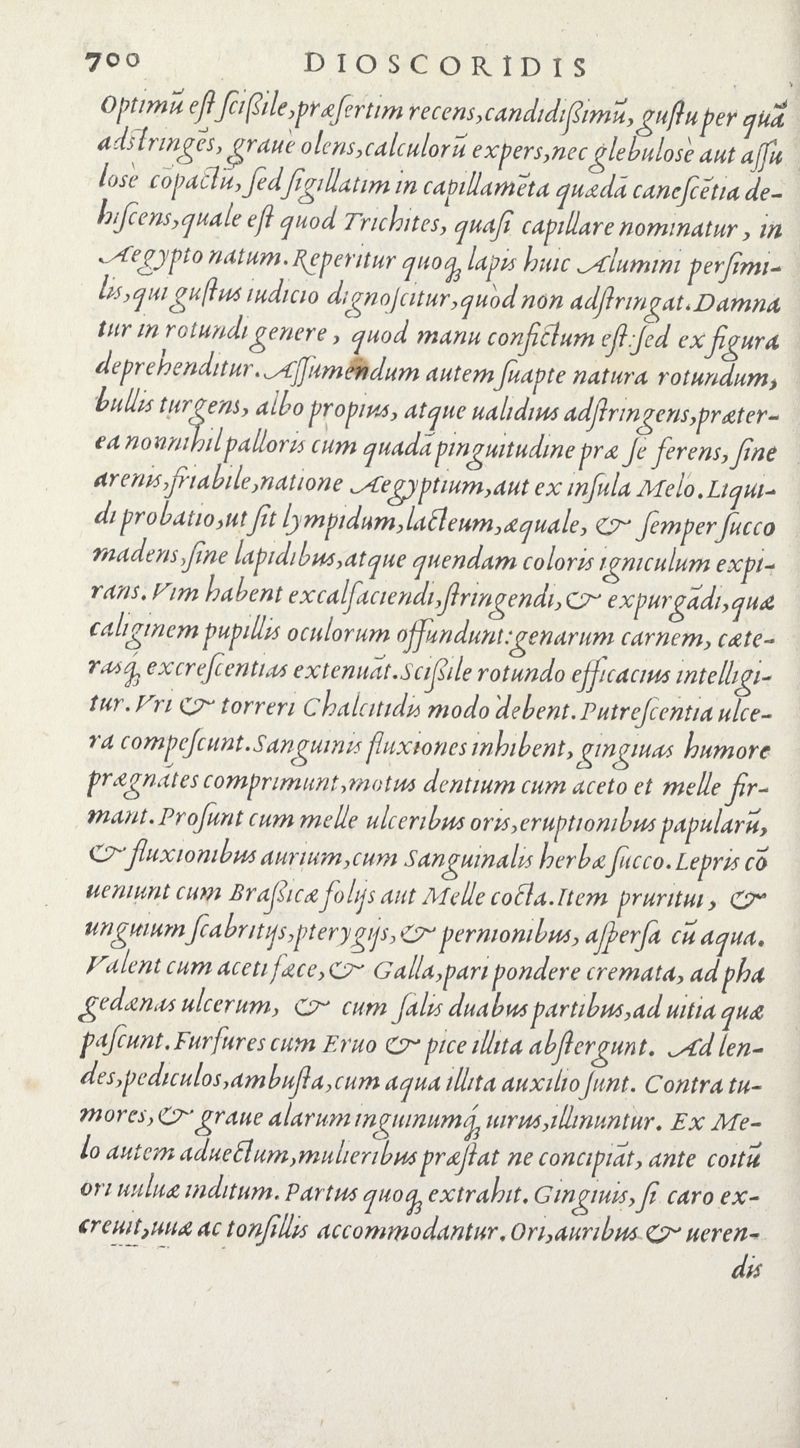 700 DIOSCORIDIS
Optimũ eſt ſciſsile,præſertim recens,candidiſsimũ, guſtu per quã
adstringẽs, graue olens,calculorũ expers,nec glebulosè aut aſſu
losè cõpactũ, ſed ſigillatim in capillamẽta quædã caneſcẽtia de-
hiſcens,quale eſt quod Trichites, quaſi capillare nominatur, in
Aegypto natum. Reperitur quoq; lapis huic Alumini perſimi-
lis,qui guſtus iudicio dignoſcitur,quòd non adſtringat. Damna
tur in rotundi genere, quod manu confictum eſt:ſed ex figura
deprehenditur. Aſſumendum autem ſuapte natura rotundum,
bullis turgens, albo propius, atque ualidius adſtringens,præter-
ea nonnihil palloris cum quadã pinguitudine præ ſe ferens, ſine
arenis,friabile,natione Aegyptium,aut ex inſula Melo. Liqui-
di probatio,ut ſit lympidum,lacteum,æquale, & ſemper ſucco
madens,ſine lapidibus,atque quendam coloris igniculum expi-
rans. Vim habent excalfaciendi,ſtringendi, & expurgãdi,quæ
caliginem pupillis oculorum offundunt:genarum carnem, cæte-
rasq; excreſcentias extenuãt. Sciſsile rotundo efficacius intelligi-
tur. Vri & torreri Chalcitidis modo debent. Putreſcentia ulce-
ra compeſcunt. Sanguinis fluxiones inhibent, gingiuas humore
prægnãtes comprimunt,motus dentium cum aceto et melle fir-
mant. Proſunt cum melle ulceribus oris,eruptionibus papularũ,
& fluxionibus aurium,cum Sanguinalis herbæ ſucco. Lepris cõ
ueniunt cum Braſsicæ folijs aut Melle cocta. Item pruritui, &
unguium ſcabritijs,pterygijs, & pernionibus, aſperſa cũ aqua.
Valent cum aceti fæce, & Galla,pari pondere cremata, ad pha
gedænas ulcerum, & cum ſalis duabus partibus,ad uitia quæ
paſcunt. Furfures cum Eruo & pice illita abſtergunt. Ad len-
des,pediculos,ambuſta,cum aqua illita auxilio ſunt. Contra tu-
mores, & graue alarum inguinumq́; uirus,illinuntur. Ex Me-
lo autem aduectum,mulieribus præſtat ne concipiãt, ante coitũ
ori uuluæ inditum. Partus quoq; extrahit. Gingiuis, ſi caro ex-
creuit,uuæ ac tonſillis accommodantur. Ori,auribus & ueren-
dis